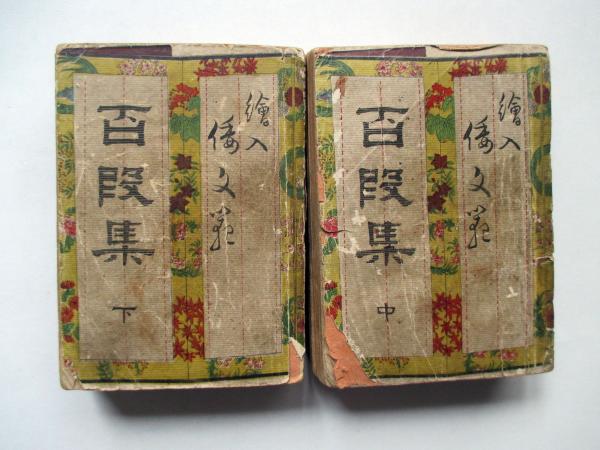 繪入
倭文範
百段集
下
繪入
倭文範
百段集
中